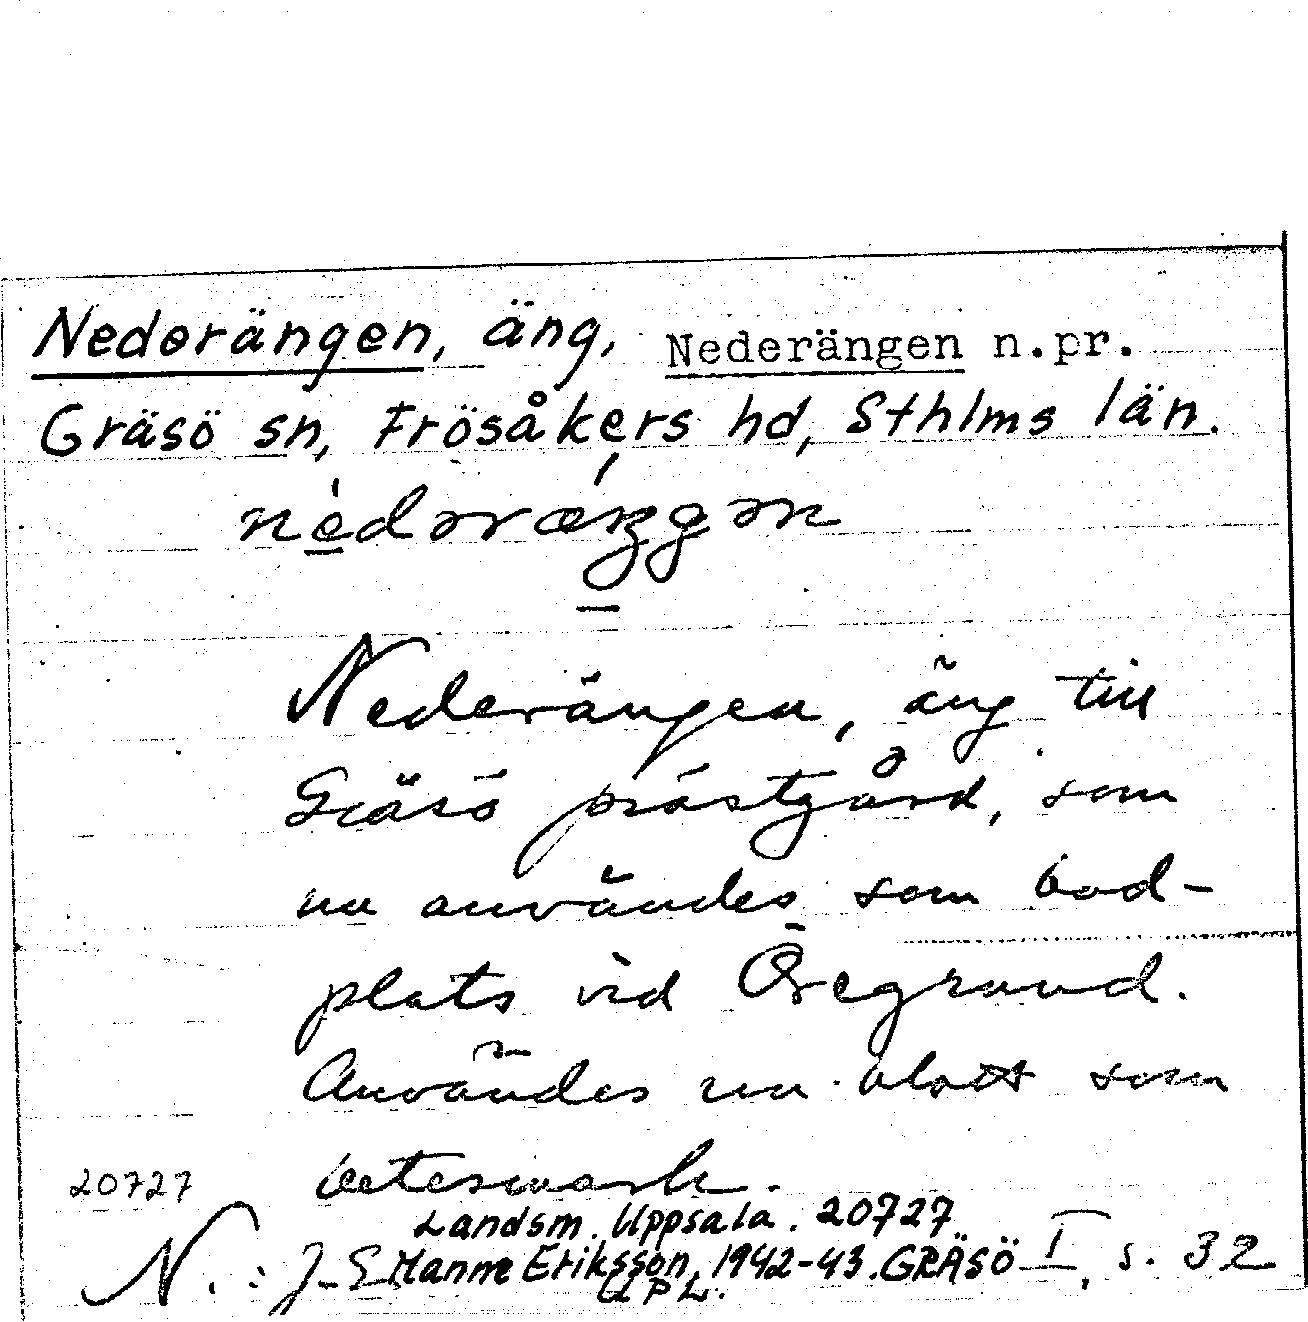 Nederängen, äng, Nederängen n.pr.
Gräsö sn, Frösåkers hd, Sthlms län.
nèdəræŋgən
Nederängen, äng till
Gräsö prästgård, som
nu användes som bad-
plats vid Öregrund.
Användes nu blott som
betesmark.
20727
Landsm. Uppsala. 20727
N.: J-E Manne Eriksson, 1942-43. GRÄSÖ I, s. 32
UPL.